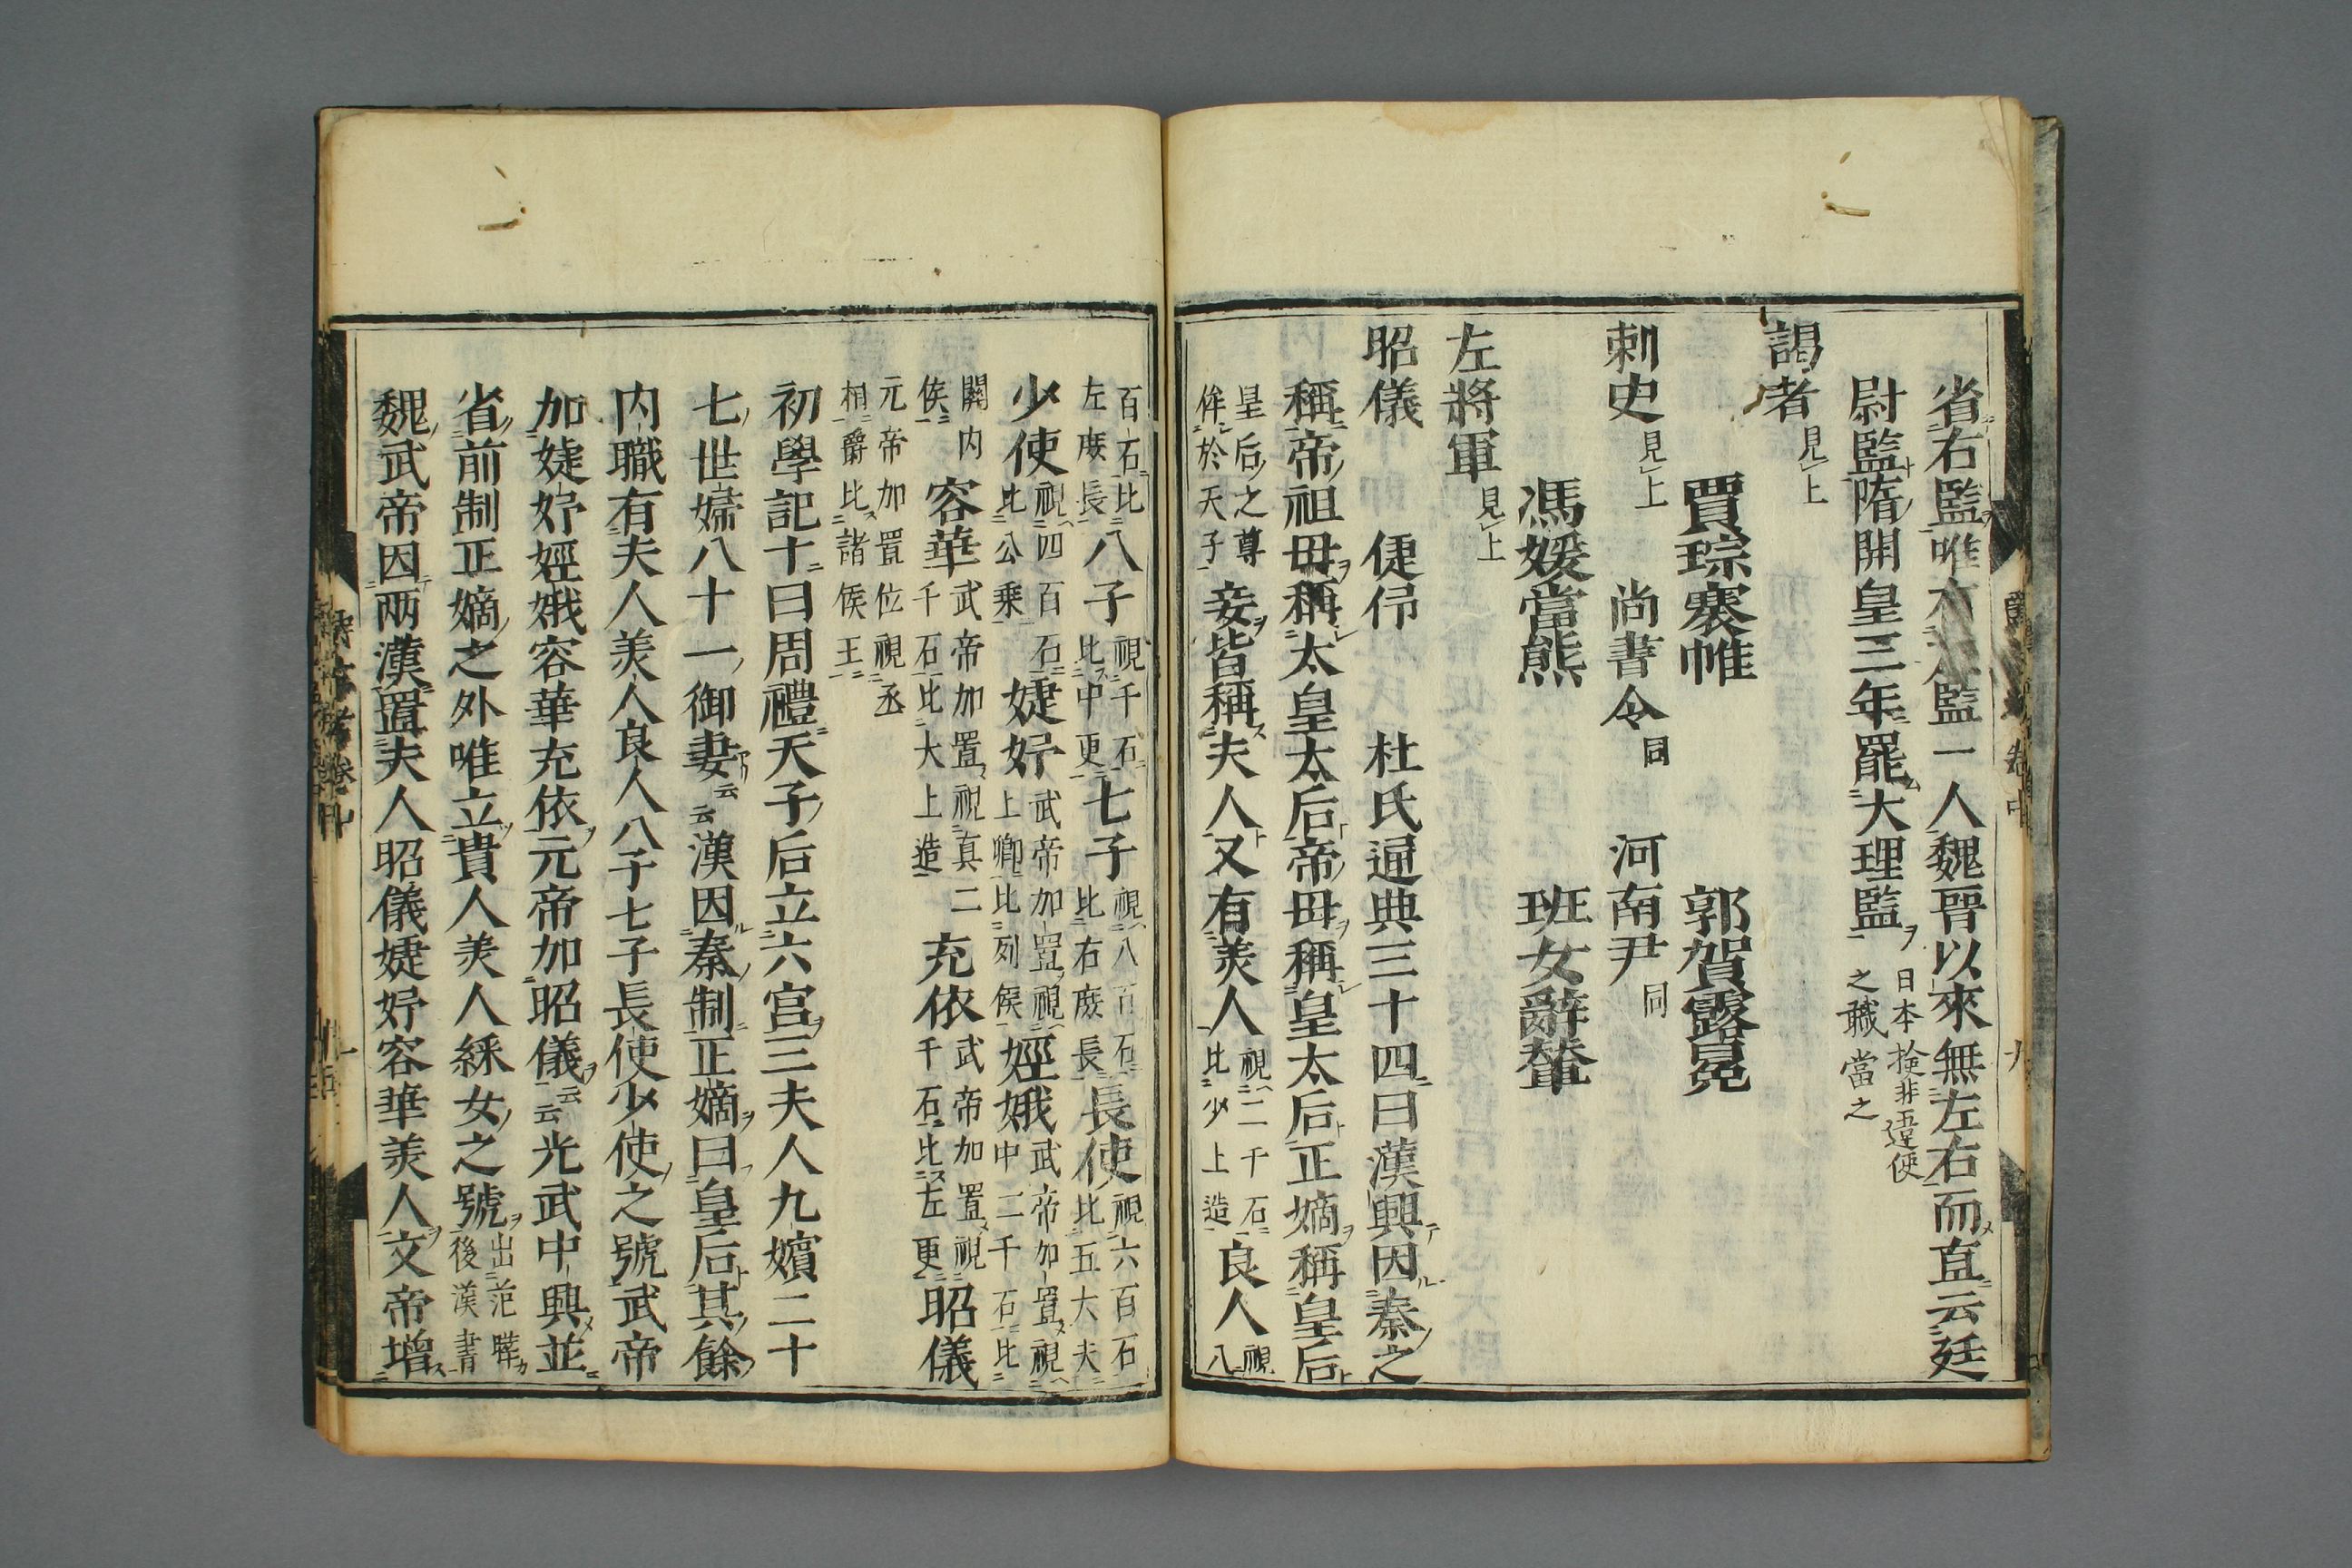 省右監唯 監一人魏晉以來無左右而直云廷
尉監隋開皇三年罷大理監 日本撿非違使之職當之
謁者見上
賈琮褰帷 郭賀露冕
刺史見上 尚書令同 河南尹同
馮媛當熊 班女辭輦
左將軍見上
昭儀 倢伃 杜氏通典三十四曰漢興因秦之
稱帝祖母稱太皇太后帝母稱皇太后正嫡稱皇后
皇后之尊侔於天子妾皆稱夫人又有美人視二千石比少上造良人視八
百石比左庶長八子視千石比中更七子視八百石比右庶長長使視六百石比五大夫
少使視四百石比公乗婕妤武帝加置視上卿比列侯娙娥武帝加置視中二千石比
關内侯容華武帝加置視真二千石比大上造充依武帝加置視千石比左更昭儀
元帝加置位視丞相爵比諸侯王
初學記十曰周禮天子后立六宮三夫人九嬪二十
七世婦八十一御妻云云漢因秦制正嫡曰皇后其餘
内職有夫人美人良人八子七子長使少使之號武帝
加婕妤娙娥容華充依元帝加昭儀云云光武中興並
省前制正嫡之外唯立貴人美人綵女之號出范曄後漢書
魏武帝因两漢置夫人昭儀婕妤容華美人文帝增